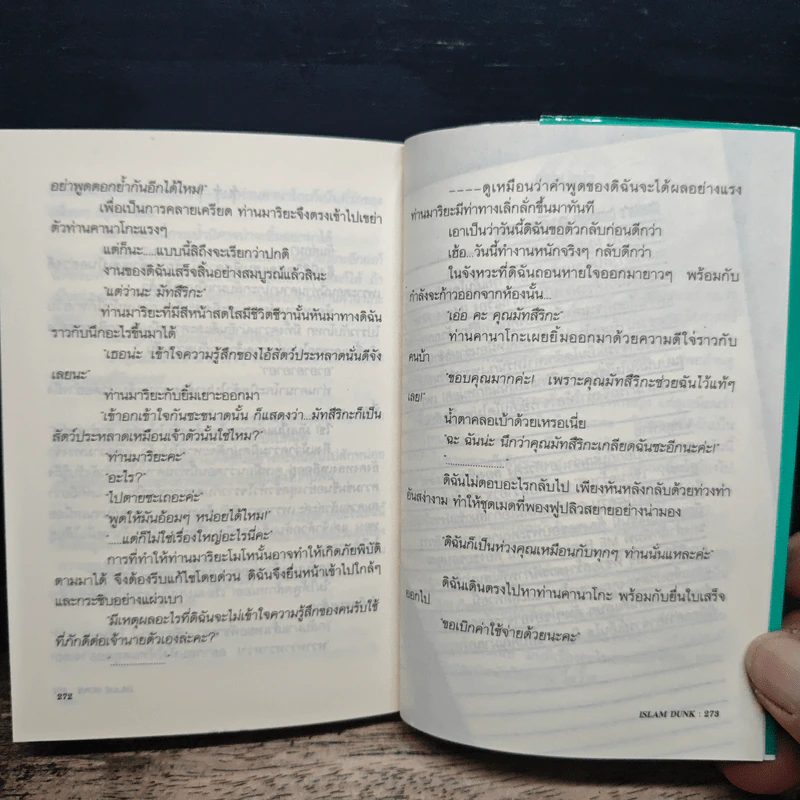 อย่าพูดตอกย้ำกันอีกได้ไหม!"
เพื่อเป็นการคลายเครียด ท่านมาริยะจึงตรงเข้าไปเขย่า
ตัวท่านคานาโกะแรงๆ
แต่ก็นะ....แบบนี้สิถึงจะเรียกว่าปกติ
งานของดิฉันเสร็จสิ้นอย่างสมบูรณ์แล้วสินะ
"แต่ว่านะ มัทสึริกะ"
ท่านมาริยะที่มีสีหน้าสดใสมีชีวิตชีวานั้นหันมาทางดิฉัน
ราวกับนึกอะไรขึ้นมาได้
"เธอน่ะ เข้าใจความรู้สึกของไอ้สัตว์ประหลาดนั่นดีจัง
เลยนะ"
ท่านมาริยะกับยิ้มเยาะออกมา
"เข้าอกเข้าใจกันซะขนาดนั้น ก็แสดงว่า...มัทสึริกะก็เป็น
สัตว์ประหลาดเหมือนเจ้าตัวนั้นใช่ไหม?"
"ท่านมาริยะคะ"
"อะไร?"
"ไปตายซะเถอะค่ะ"
"พูดให้มันอ้อมๆ หน่อยได้ไหม!"
".....แต่ก็ไม่ใช่เรื่องใหญ่อะไรนี่คะ"
การที่ทำให้ท่านมาริยะโมโหนั้นอาจทำให้เกิดภัยพิบัติ
ตามมาได้ จึงต้องรีบแก้ไขโดยด่วน ดิฉันจึงยื่นหน้าเข้าไปใกล้ๆ
และกระซิบอย่างแผ่วเบา
"มีเหตุผลอะไรที่ดิฉันจะไม่เข้าใจความรู้สึกของคนรับใช้
ที่ภักดีต่อเจ้านายตัวเองล่ะคะ?"
....................
272
----ดูเหมือนว่าคำพูดของดิฉันจะได้ผลอย่างแรง
ท่านมาริยะมีท่าทางเลิ่กลั่กขึ้นมาทันที
เอาเป็นว่าวันนี้ดิฉันขอตัวกลับก่อนดีกว่า
เฮ้อ...วันนี้ทำงานหนักจริงๆ กลับดีกว่า
ในจังหวะที่ดิฉันถอนหายใจออกมายาวๆ พร้อมกับ
กำลังจะก้าวออกจากห้องนั้น...
"เอ่อ คะ คุณมัทสึริกะ"
ท่านคานาโกะเผยยิ้มออกมาด้วยความดีใจราวกับ
คนบ้า
"ขอบคุณมากค่ะ! เพราะคุณมัทสึริกะช่วยฉันไว้แท้ๆ
เลย!"
น้ำตาคลอเบ้าด้วยเหรอเนี่ย
"ฉะ ฉันน่ะ นึกว่าคุณมัทสึริกะเกลียดฉันซะอีกนะคะ!"
"....................
ดิฉันไม่ตอบอะไรกลับไป เพียงหันหลังกลับด้วยท่วงท่า
อันสง่างาม ทำให้ชุดเมดที่พองฟูปลิวสยายอย่างน่ามอง
"ดิฉันก็เป็นห่วงคุณเหมือนกับทุกๆ ท่านนั่นแหละค่ะ"
ดิฉันเดินตรงไปหาท่านคานาโกะ พร้อมกับยื่นใบเสร็จ
ออกไป
"ขอเบิกค่าใช้จ่ายด้วยนะคะ"
ISLAM DUNK : 273